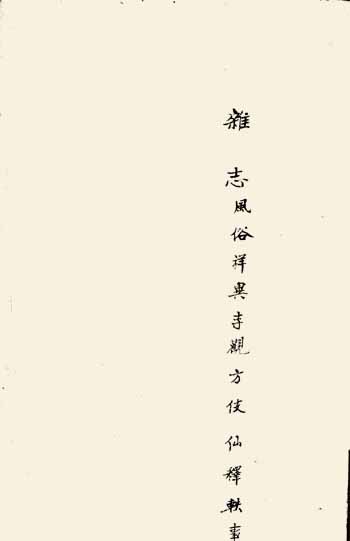 雜志風俗祥異寺觀方伎仙釋軼事